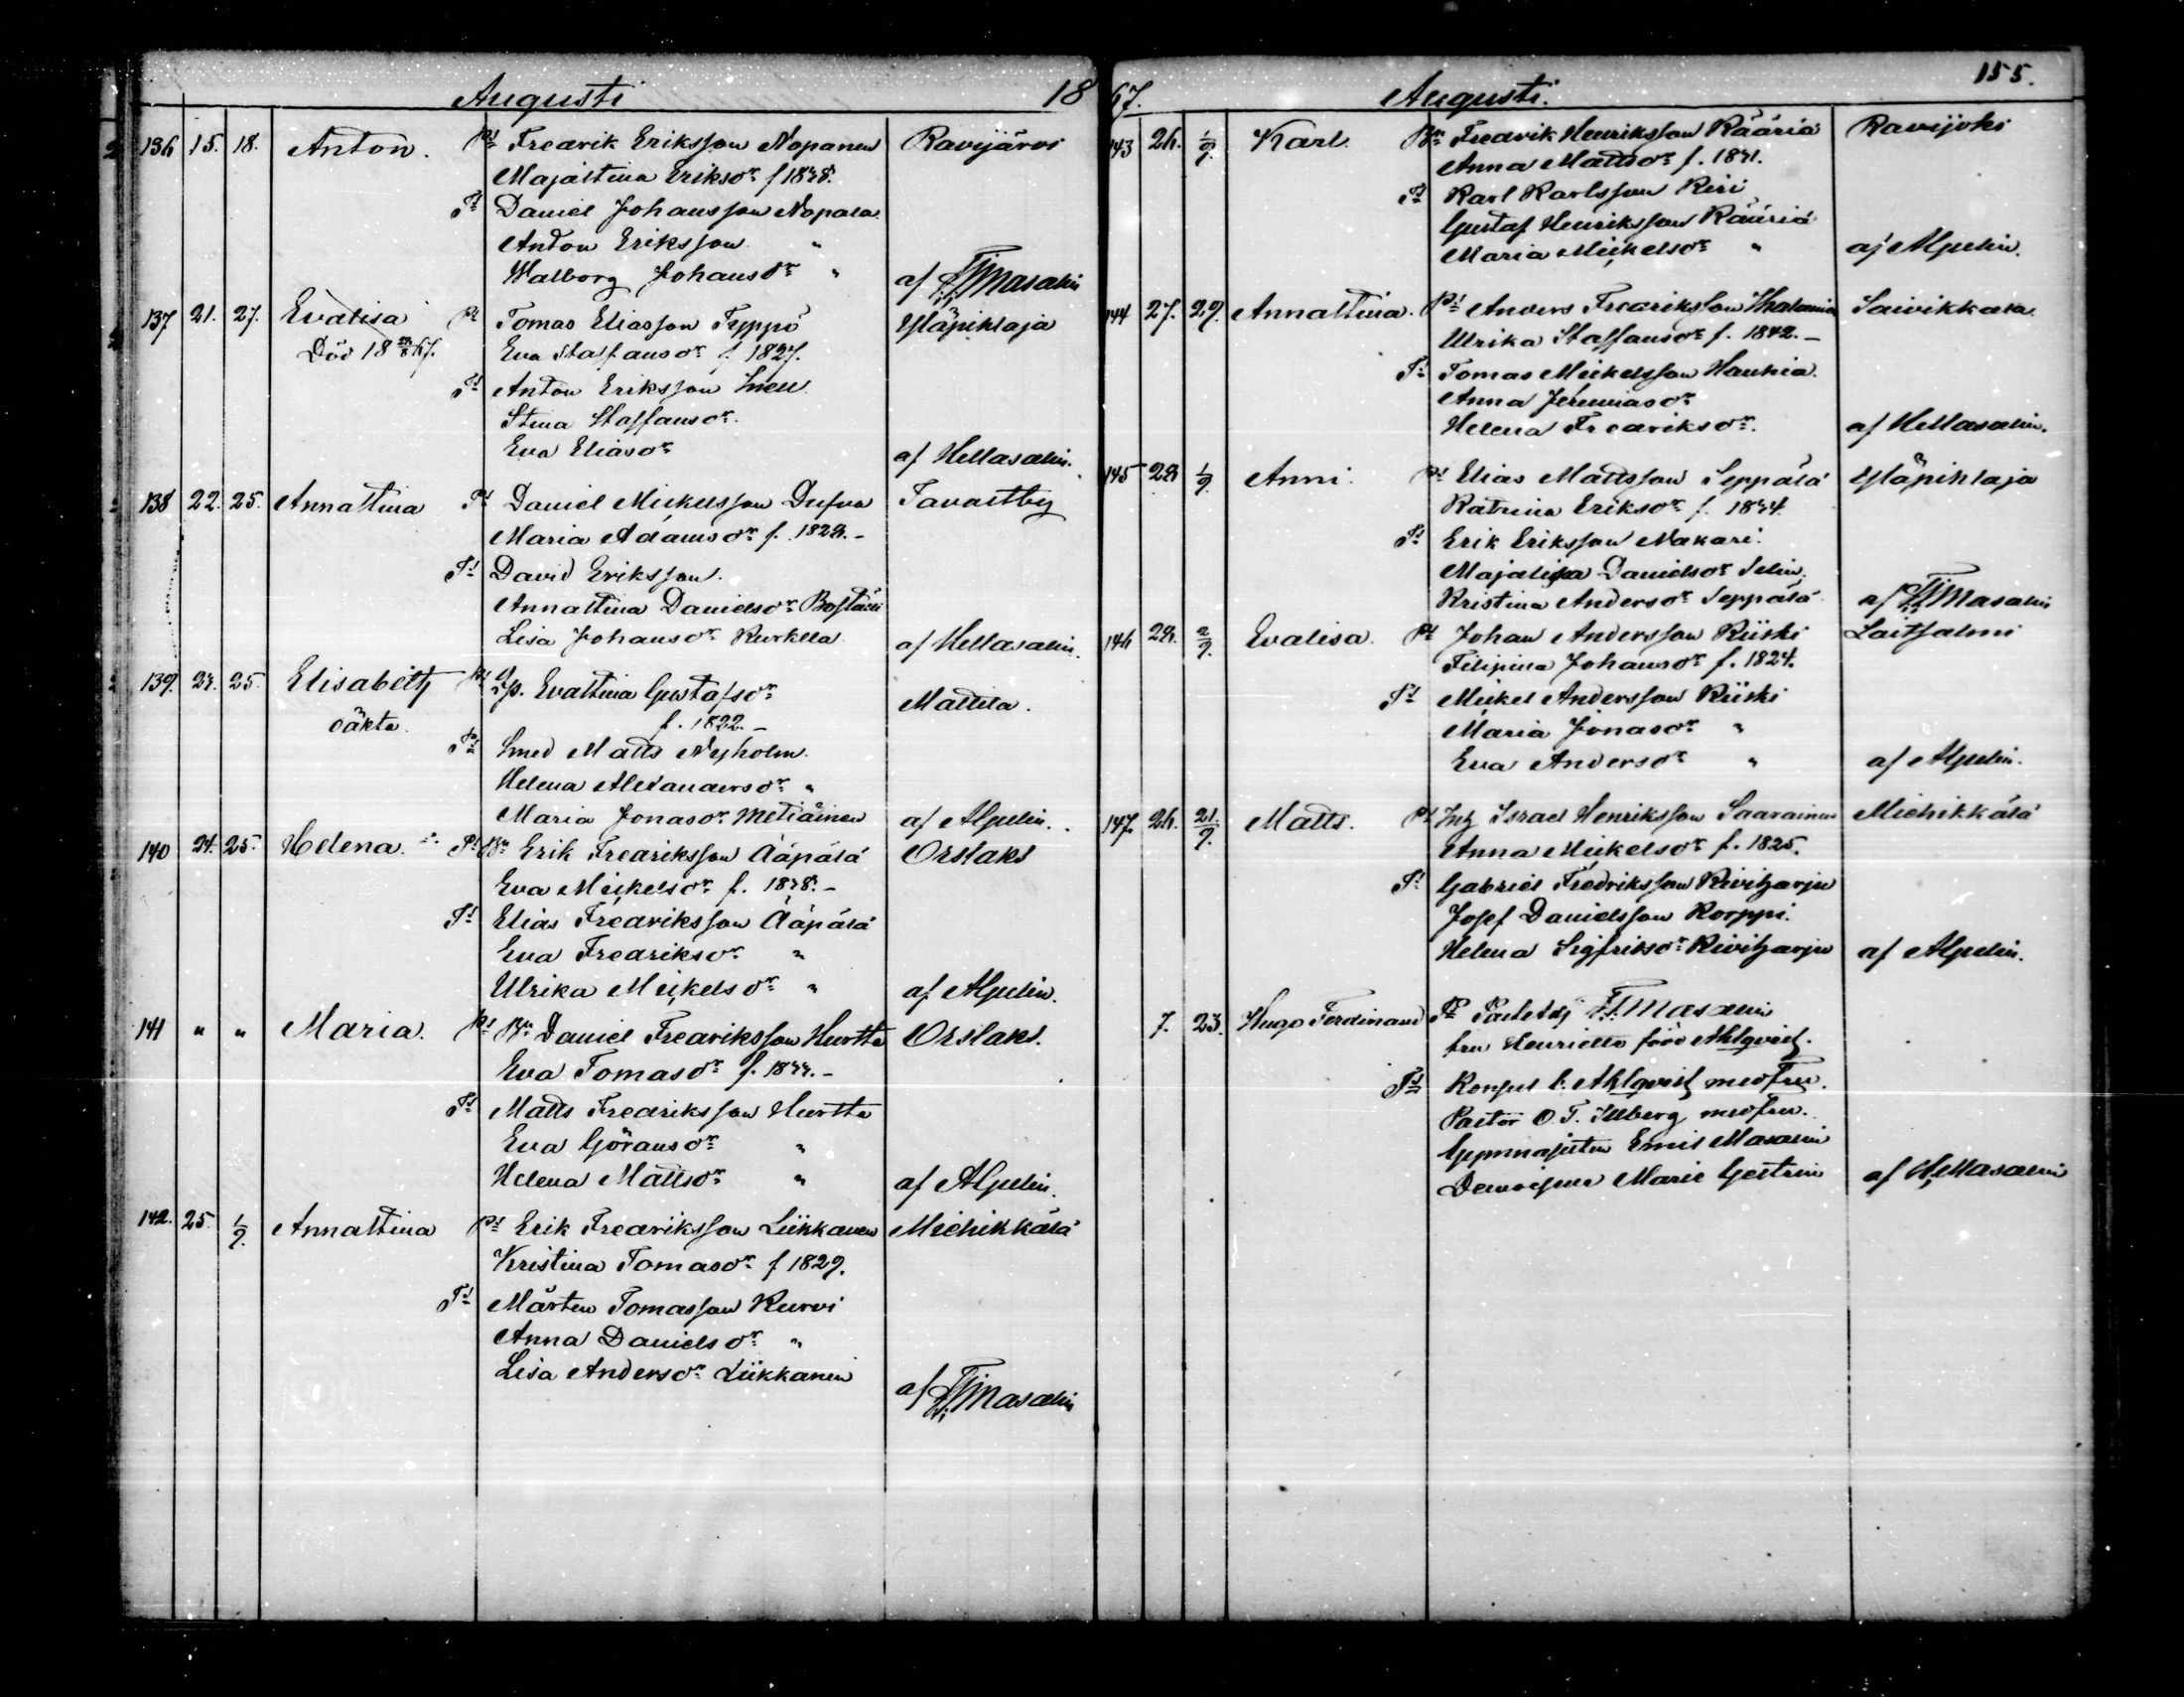 155.
Augusti 18
136 15. 18. Anton. Ps Fredrik Eriksson Nopanen Ravijärvi
Majastina Eriksdr f 1838.
Ts Daniel Johansson Nopala
Anton Eriksson "
Walborg Johansdr " af Masalin
137 21. 27. Evalisa Ps Tomas Eliasson Typpö Yläpihlaja
Död 18 67. Eva Staffansdr f. 1827.
Ts Anton Eriksson
Stina Staffansdr
Eva Eliasdr af HMasalin.
138 22. 25. Annastina Ps Daniel Mickelsson Dufva Tavastby
Maria Adamsdr f. 1828. –
Ts David Eriksson.
Annastina Danielsdr
Lisa Johansdr Kurkela af HMasalin.
139. 23. 25. Elisabeth Ps Evastina Gustafsdr Mattila.
oäkta. f. 1822. –
Ts Smed Matts Nyholm.
Helena Alexandersdr "
Maria Jonasdr Metiäinen af Alpelin.
140 24. 25. Helena. Ps Bn Erik Fredriksson Ääpälä Orslaks
Eva Mickelsdr f. 1838. –
Ts Elias Fredriksson Ääpälä
Eva Fredriksdr "
Ulrika Mickelsdr " af Alpelin.
141 " " Maria. Ps Bn Daniel Fredriksson Hurtta Orslaks.
Eva Tomasdr f. 1833. –
Ts Matts Fredriksson Hurtta
Eva Göransdr "
Helena Mattsdr " af Alpelin.
142. 25. 1/9. Annastina Ps Erik Fredriksson Liikkanen Miehikkälä
Kristina Tomasdr f 1829.
Ts Mårten Tomasson Kurvi
Anna Danielsdr "
Lisa Andersdr Liikkanen af Masalin
67. Augusti.
143 26. 1/9. Karl. Bn Fredrik Henriksson Rääriä Ravijoki
Anna Mattsdr f. 1831.
Ts Karl Karlsson Kiri
Gustaf Henriksson Rääriä
Maria Mickelsdr " af Alpelin.
144 27. 29. Annastina. Ps Anders Fredriksson Saivikkala
Ulrika Staffansdr f. 1842. –
Ts Tomas Mickelsson Haukia.
Anna Jeremiasdr
Helena Fredriksdr. af HMasalin.
145 28 1/9. Anni. Ps Elias Mattsson Seppälä Yläpihlaja
Katrina Eriksdr f. 1834.
Ts Erik Eriksson Nakari.
Majalisa Danielsdr Selin.
Kristina Andersdr Seppälä af Masalin
146 28. 2/9. Evalisa. Ps Johan Andersson Riiski Laitsalmi
Filipina Johansdr f. 1824.
Ts Mickel Andersson Riiski
Maria Jonasdr "
Eva Andersdr " af Alpelin.
147. 26. 21/9. Matts. Ps Israel Henriksson Saarainen Miehikkälä
Anna Mickelsdr f. 1825.
Ts Gabriel Fredriksson Kiviharju
Josef Danielsson Korppi.
Helena Sigfridsdr Kiviharju af Alpelin.
7. 23. Hugo Ferdinand Ps Masalin
fru Henriette född Ahlqvist.
Ts Konsul C. Ahlqvist med fru.
Pastor O. F. Illberg med fru.
Gymnasisten Emil Masalin
Demoiselle Marie Gestrin af HMasalin